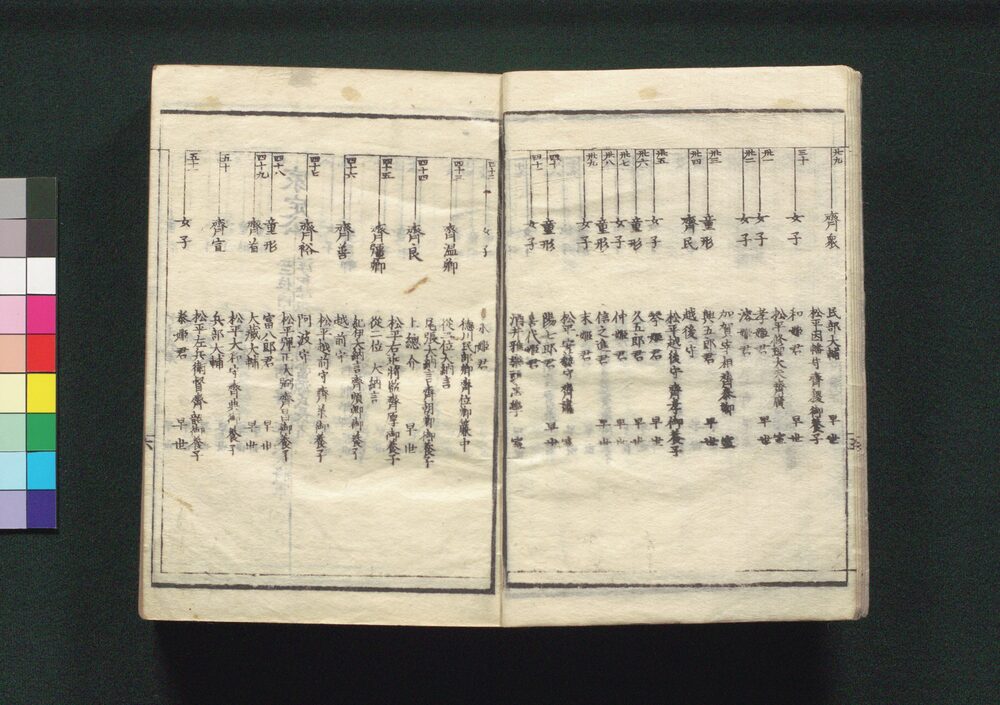 廾九
齊衆
民部大輔
早世
松平因幡守齊稷御養子
三十
女子
和姫君
早世
松平修理大夫齊廣
室
卅一
女子
孝姫君
早世
卅二
女子
溶姫君
加賀守
室
卅三
童形
與五郎君
早世
卅四
齊民
越後守
松平越後守齊孝御養子
卅五
女子
琴姫君
早世
卅六
童形
久五郎君
早世
卅七
女子
仲姫君
早世
卅八
童形
信之進君
早世
卅九
女子
末姫君
松平安藝守齊
室
四十
童形
陽七郎君
早世
四十一
女子
喜代姫君
酒井雅樂頭
室
女子
永姫君
徳川民部卿齊位卿簾中
四十三
齊温卿
從二位大納言
尾張大納言齊朝卿御養子
四十四
齊良
上總介
早世
松平右近將監齊厚御養子
四十五
齊彊卿
從二位大納言
紀伊大納言齊順卿御養子
四十六
齊善
越前守
松平越前守齊承御養子
四十七
齊裕
阿波守
松平彈正大弼齊昌御養子
四十八
童形
富八郎君
早世
四十九
齊省
大藏大輔
早世
松平大和守齊典御養子
五十
齊宣
兵部大輔
松平左兵衛督齊韶御養子
五十一
女子
泰姫君
早世